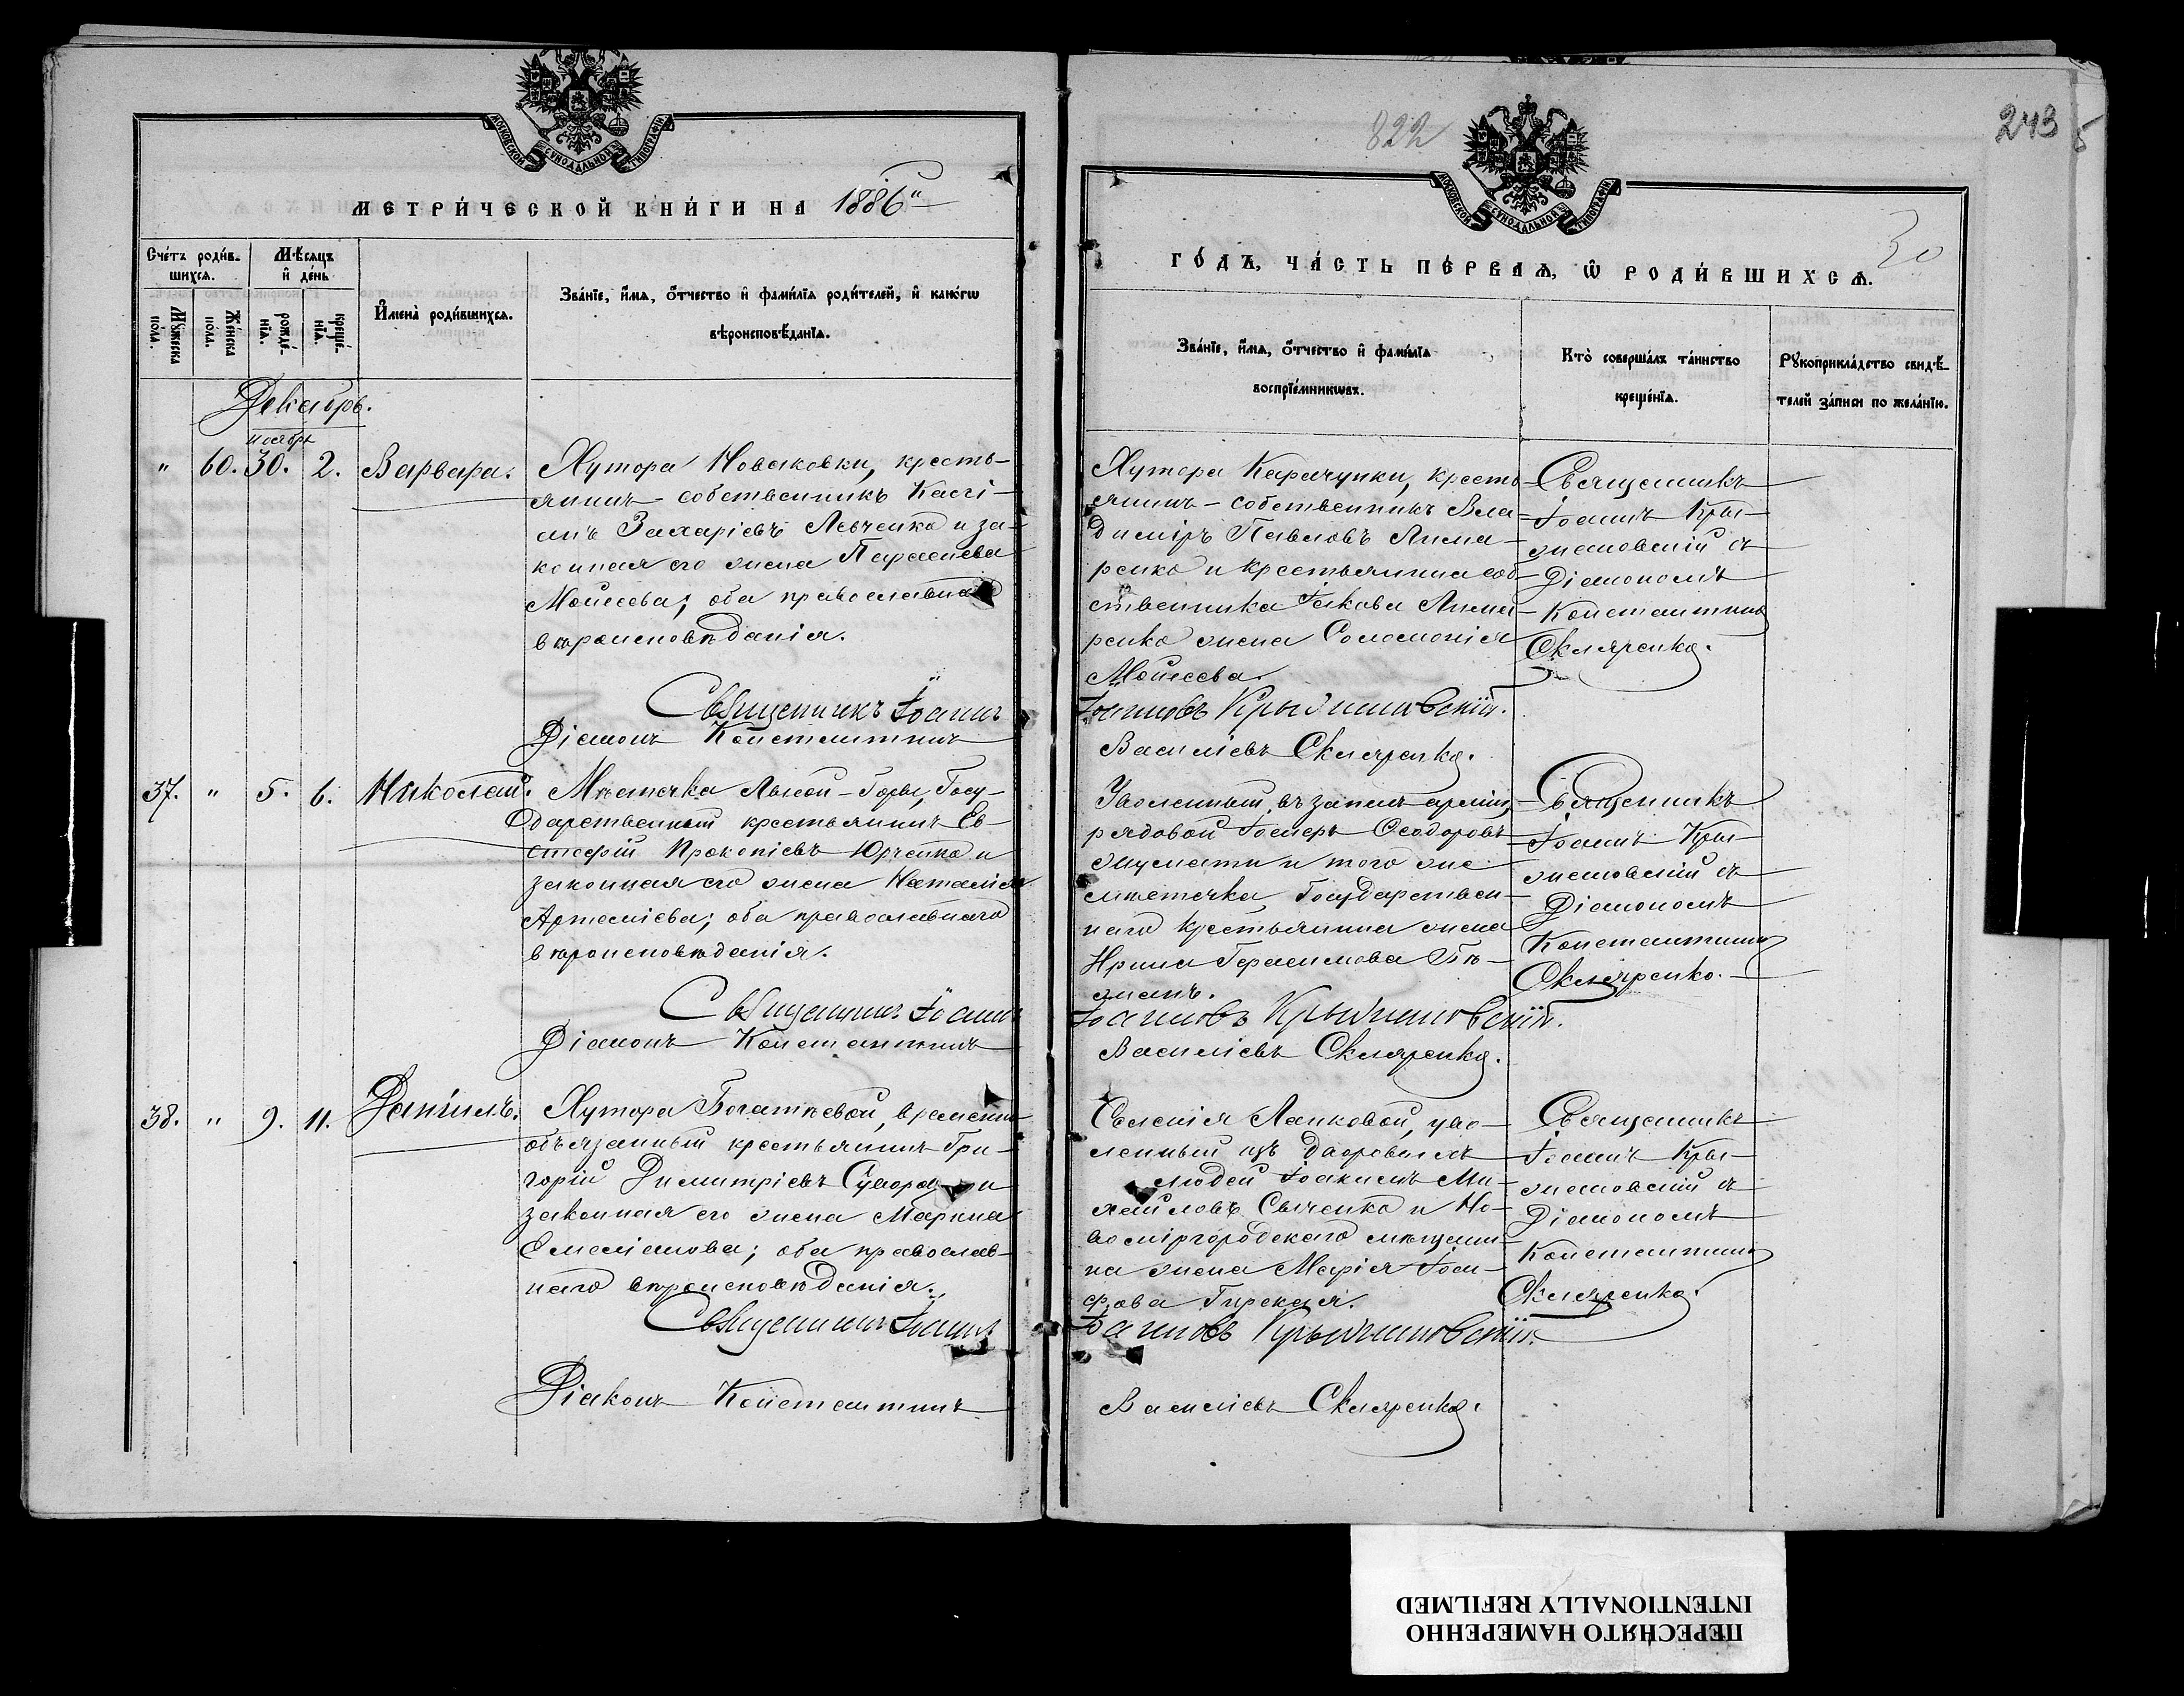 МОСКОВСКОЙ СУНОДАЛЬНОЙ ТИПОГРАФІИ
МЕТРИ́ЧЕСКОЙ КНИ́ГИ НА 1886й
Сче́тъ роди́в-
шихсѧ.
Мѣ́сѧцъ
и҆ де́нь
Мꙋ́жеска
по́ла.
Же́нска
по́ла.
рожде́-
нїѧ.
креще́-
нїѧ.
И҆мена̀ роди́вшихсѧ.
Зва́нїе, и҆́мѧ, ѻ҆́тчество и҆ фами́лїѧ роди́телей, и҆ како́гѡ
вѣроисповѣ́данїѧ.
Декабрь.
ноября
" 60. 30. 2. Варвара.
Хутора Новаковки, кресть-
янинъ - собственникъ Касі-
анъ Захаріевъ Левченко и за-
конная его жена Параскева
Моисеева; оба православнаго
вѣроисповѣданія.
Священникъ Іоаннъ
Діаконъ Константинъ
37. " 5. 6. Николай.
Мѣстечка Лысой-Горы, Госу-
дарственный крестьянинъ Ев-
стафій Прокопіевъ Юрченко и
законная его жена Наталія
Артеміева; оба православнаго
вѣроисповѣданія.
Священникъ Іоаннъ
Діаконъ Константинъ
38. " 9. 11. Даніилъ.
Хутора Богатыевой, временно
обязанный крестьянинъ Гри-
горій Димитріевъ и
законная его жена Марина
Емеліанова; оба православ-
наго вѣроисповѣданія.
Священникъ Іоаннъ
Діаконъ Константинъ
822
243
5
МОСКОВСКОЙ СУНОДАЛЬНОЙ ТИПОГРАФІИ
30
ГО́ДЪ, ЧА́СТЬ ПЕ́РВАѦ, Ѡ҆ РОДИ́ВШИХСѦ.
Зва́нїе, и҆́мѧ, ѻ҆́тчество и҆ фами́лїѧ
воспрїе́мникѡвъ.
Кто̀ соверша́лъ та́инство
креще́нїѧ.
Рꙋкоприкла́дство свидѣ́-
телей за́писи по жела́нїю.
Хутора Карачунки, кресть-
янинъ - собственникъ Вла-
диміръ Павловъ Лима-
ренко и крестьянина соб-
ственника Іакова Лима-
ренко жена Соломонія
Моисеева.
Священникъ
Іоаннъ Кры-
жановскій съ
Діакономъ
Константиномъ
Скляренко.
Іоанновъ Крыжановскій.
Василіевъ Скляренко.
Уволенный въ запасъ арміи,
рядовой Ѳеодоровъ
и того же
мѣстечка Государствен-
наго крестьянина жена
Ирина Герасимова
Священникъ
Іоаннъ Кры-
жановскій съ
Діакономъ
Константиномъ
Скляренко.
Іоанновъ Крыжановскій.
Василіевъ Скляренко.
Селенія Ланковой, уво-
ленный изъ дворовыхъ
людей Іоакимъ Ми-
хаиловъ Сыченко и Но-
воміргородскаго мѣщани-
на жена Марія Іоси-
фова
Священникъ
Іоаннъ Кры-
жановскій съ
Діакономъ
Константиномъ
Скляренко.
Іоанновъ Крыжановскій.
Василіевъ Скляренко.
ПЕРЕСНЯТО НАМЕРЕННО
INTENTIONALLY REFILMED